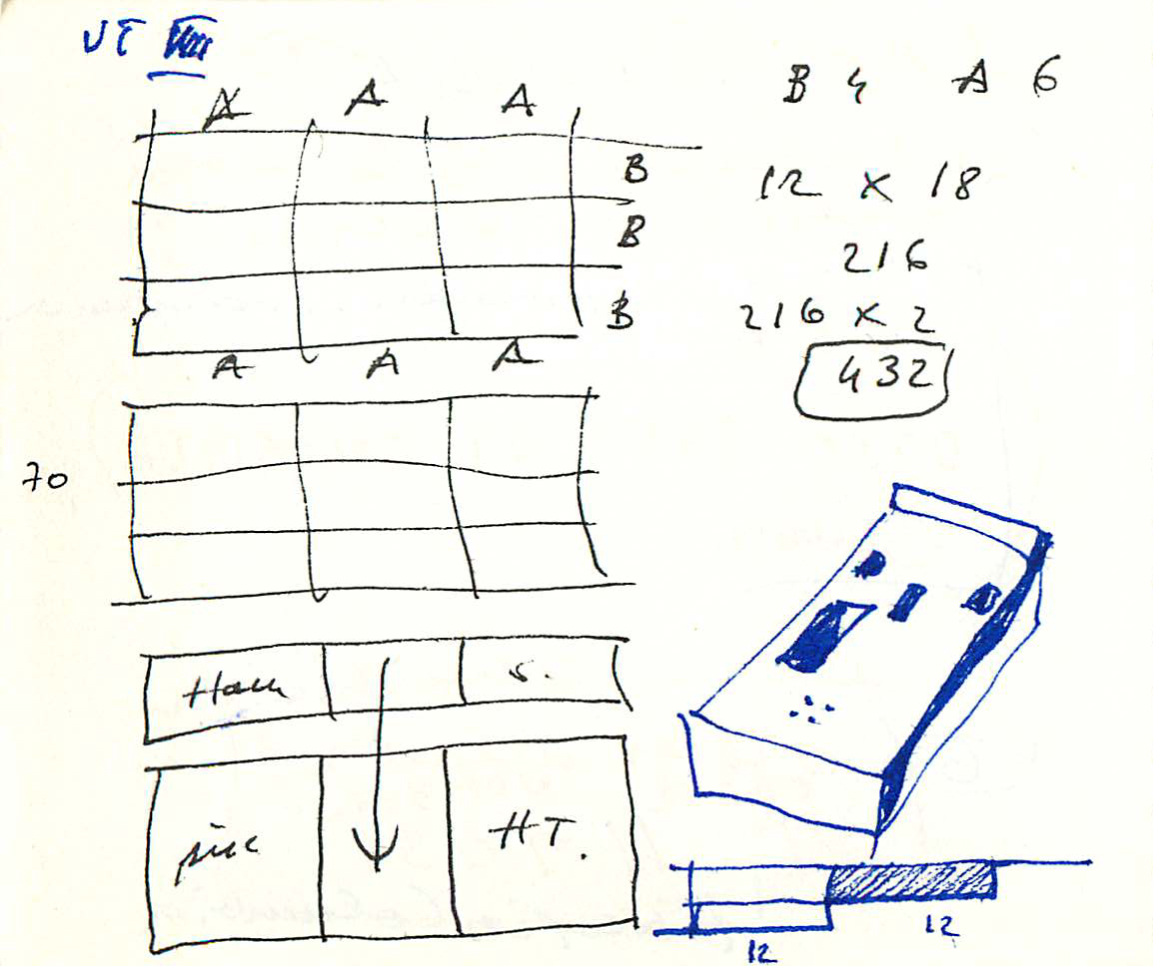 VT VIII
A A A
B 4 A 6
B
B
B
12 X 18
216
216 X 2
432
A A A
70
S.
HT.
12
12